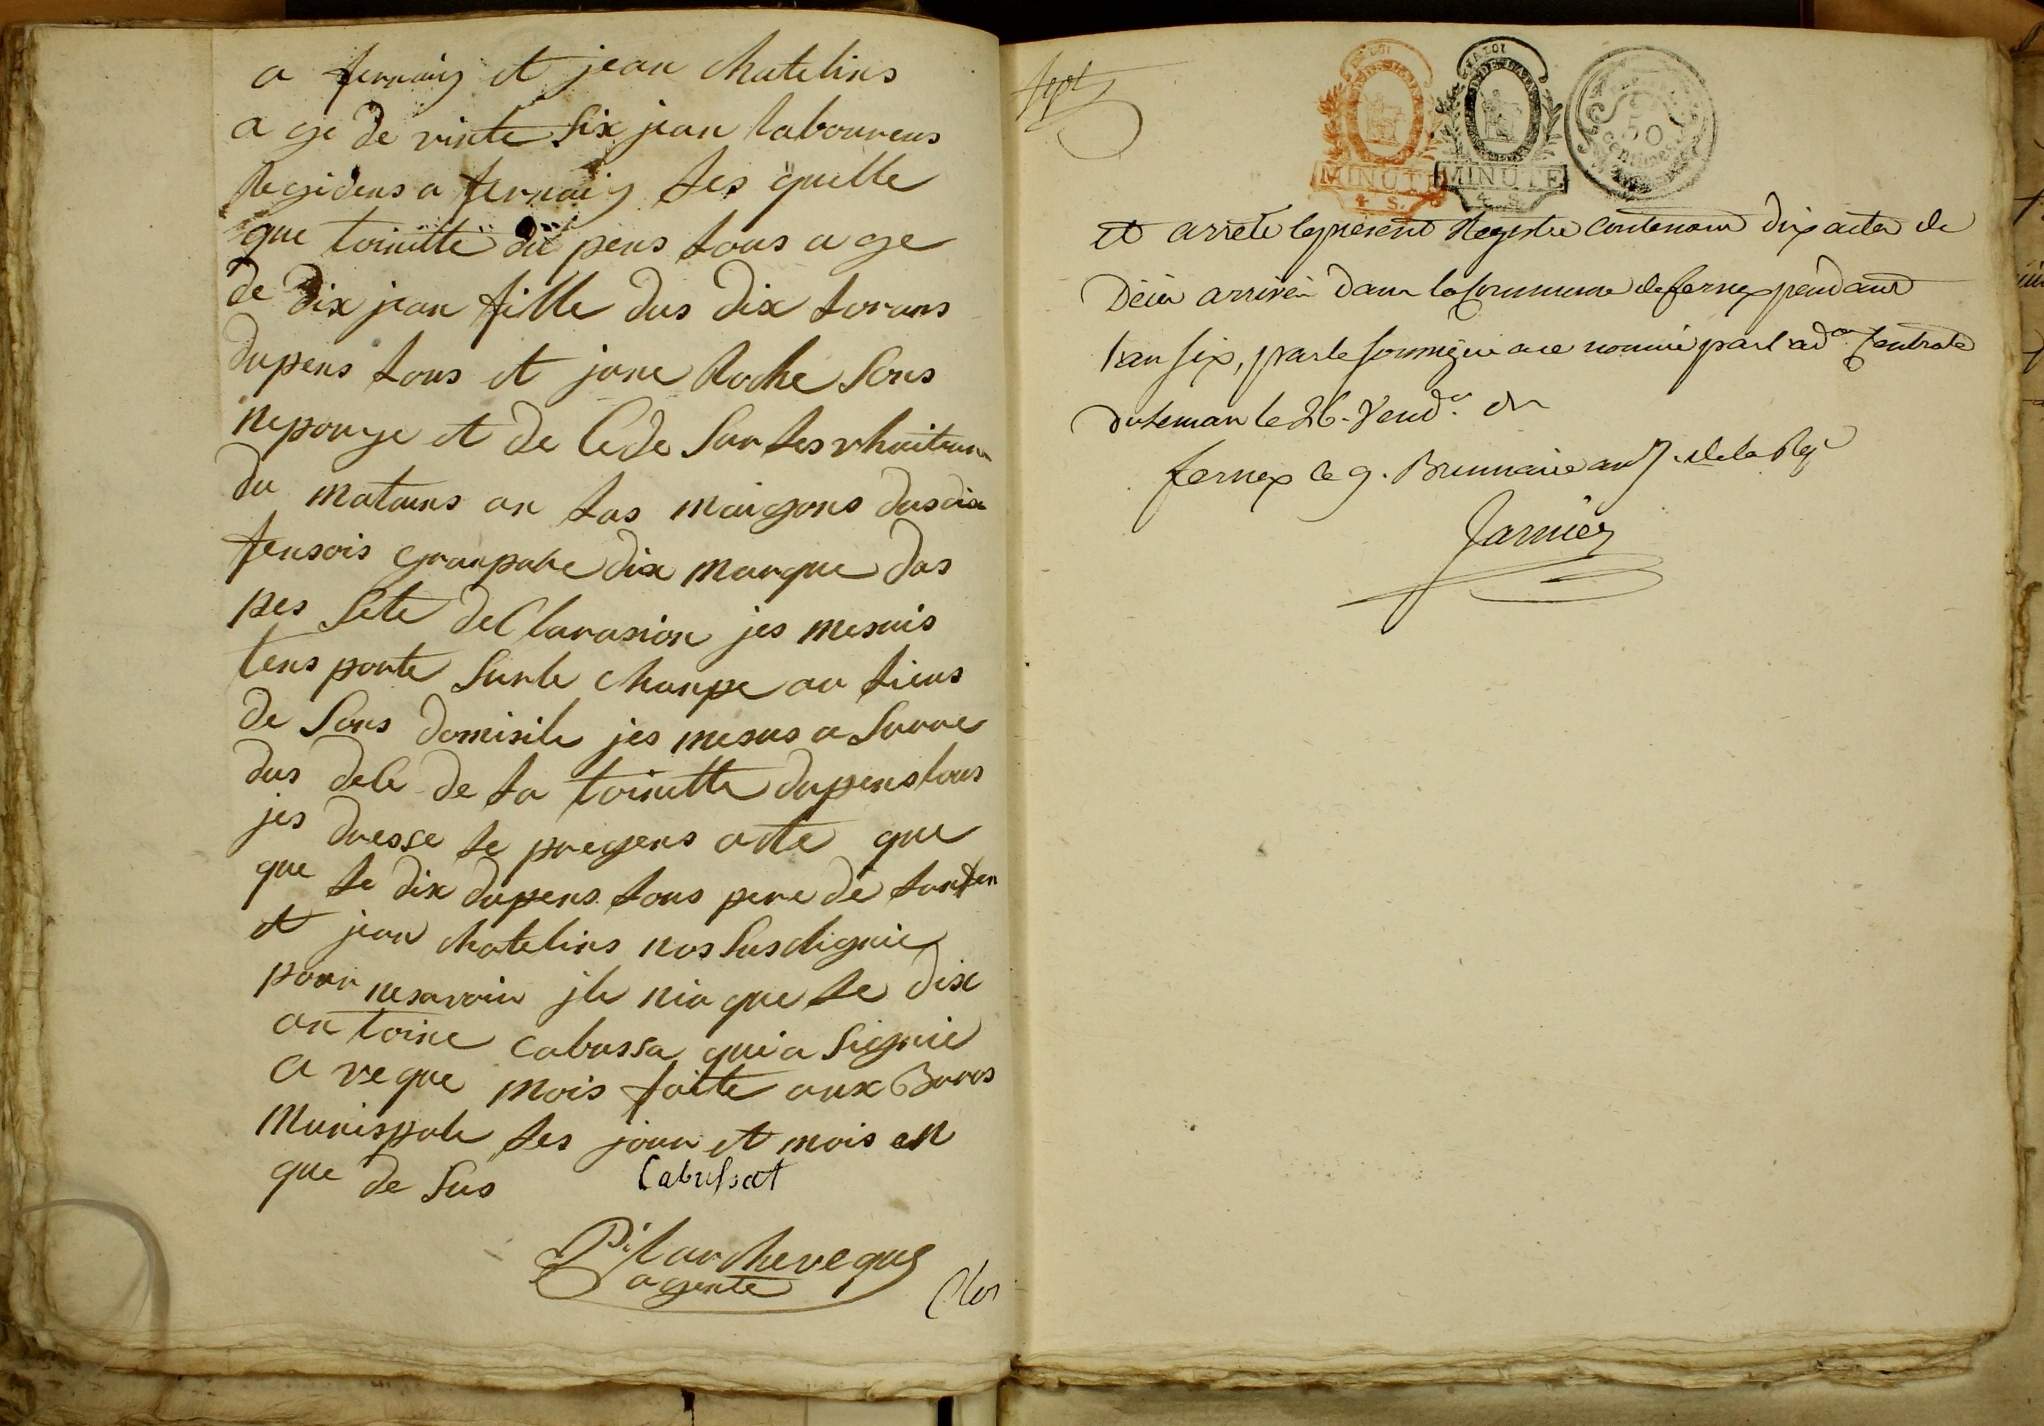 a fernaiy et jean chatelins
a ge de vinte six jean laboureus
Regidens a fernaiy les quelle
que toinette du pens lous a ge
de dix jean fille dus dix
dupens lous et jane Roche sons
nepouge et de cede sur les vhuit
du matains an las maigons dus dix
fensois granpabe dix marque das
pes sete declarasion jes mesuis
tens porte surle chanpe au lieus
de sons domisile jes mesus a surre
dus dece de la toinette dupenslous
jes dresse le pregens acte que
que le dix dupens lous pere de
et jean chatelins nos sus signie
pour nesavoir jle nia que le dix
antoine cabussa qui a signie
a veque mois faite aux Buros
munispale les jour et mois an
que de sus Cabussat
P. larcheveque
agente
Clos
sept
MINUTE
4 S.
MINUTE
4 S.
50
centimes
et arrêté le présent Registre contenant dix actes de
Décès arrivés dans la Commune de fernex pendant
l'an six, par le soussigné a ce nommé par l'ad.on Centrale
du Leman le 26. Vend.re d.er
fernex le 9. Brumaire an 7. de la Rép
Jarnier